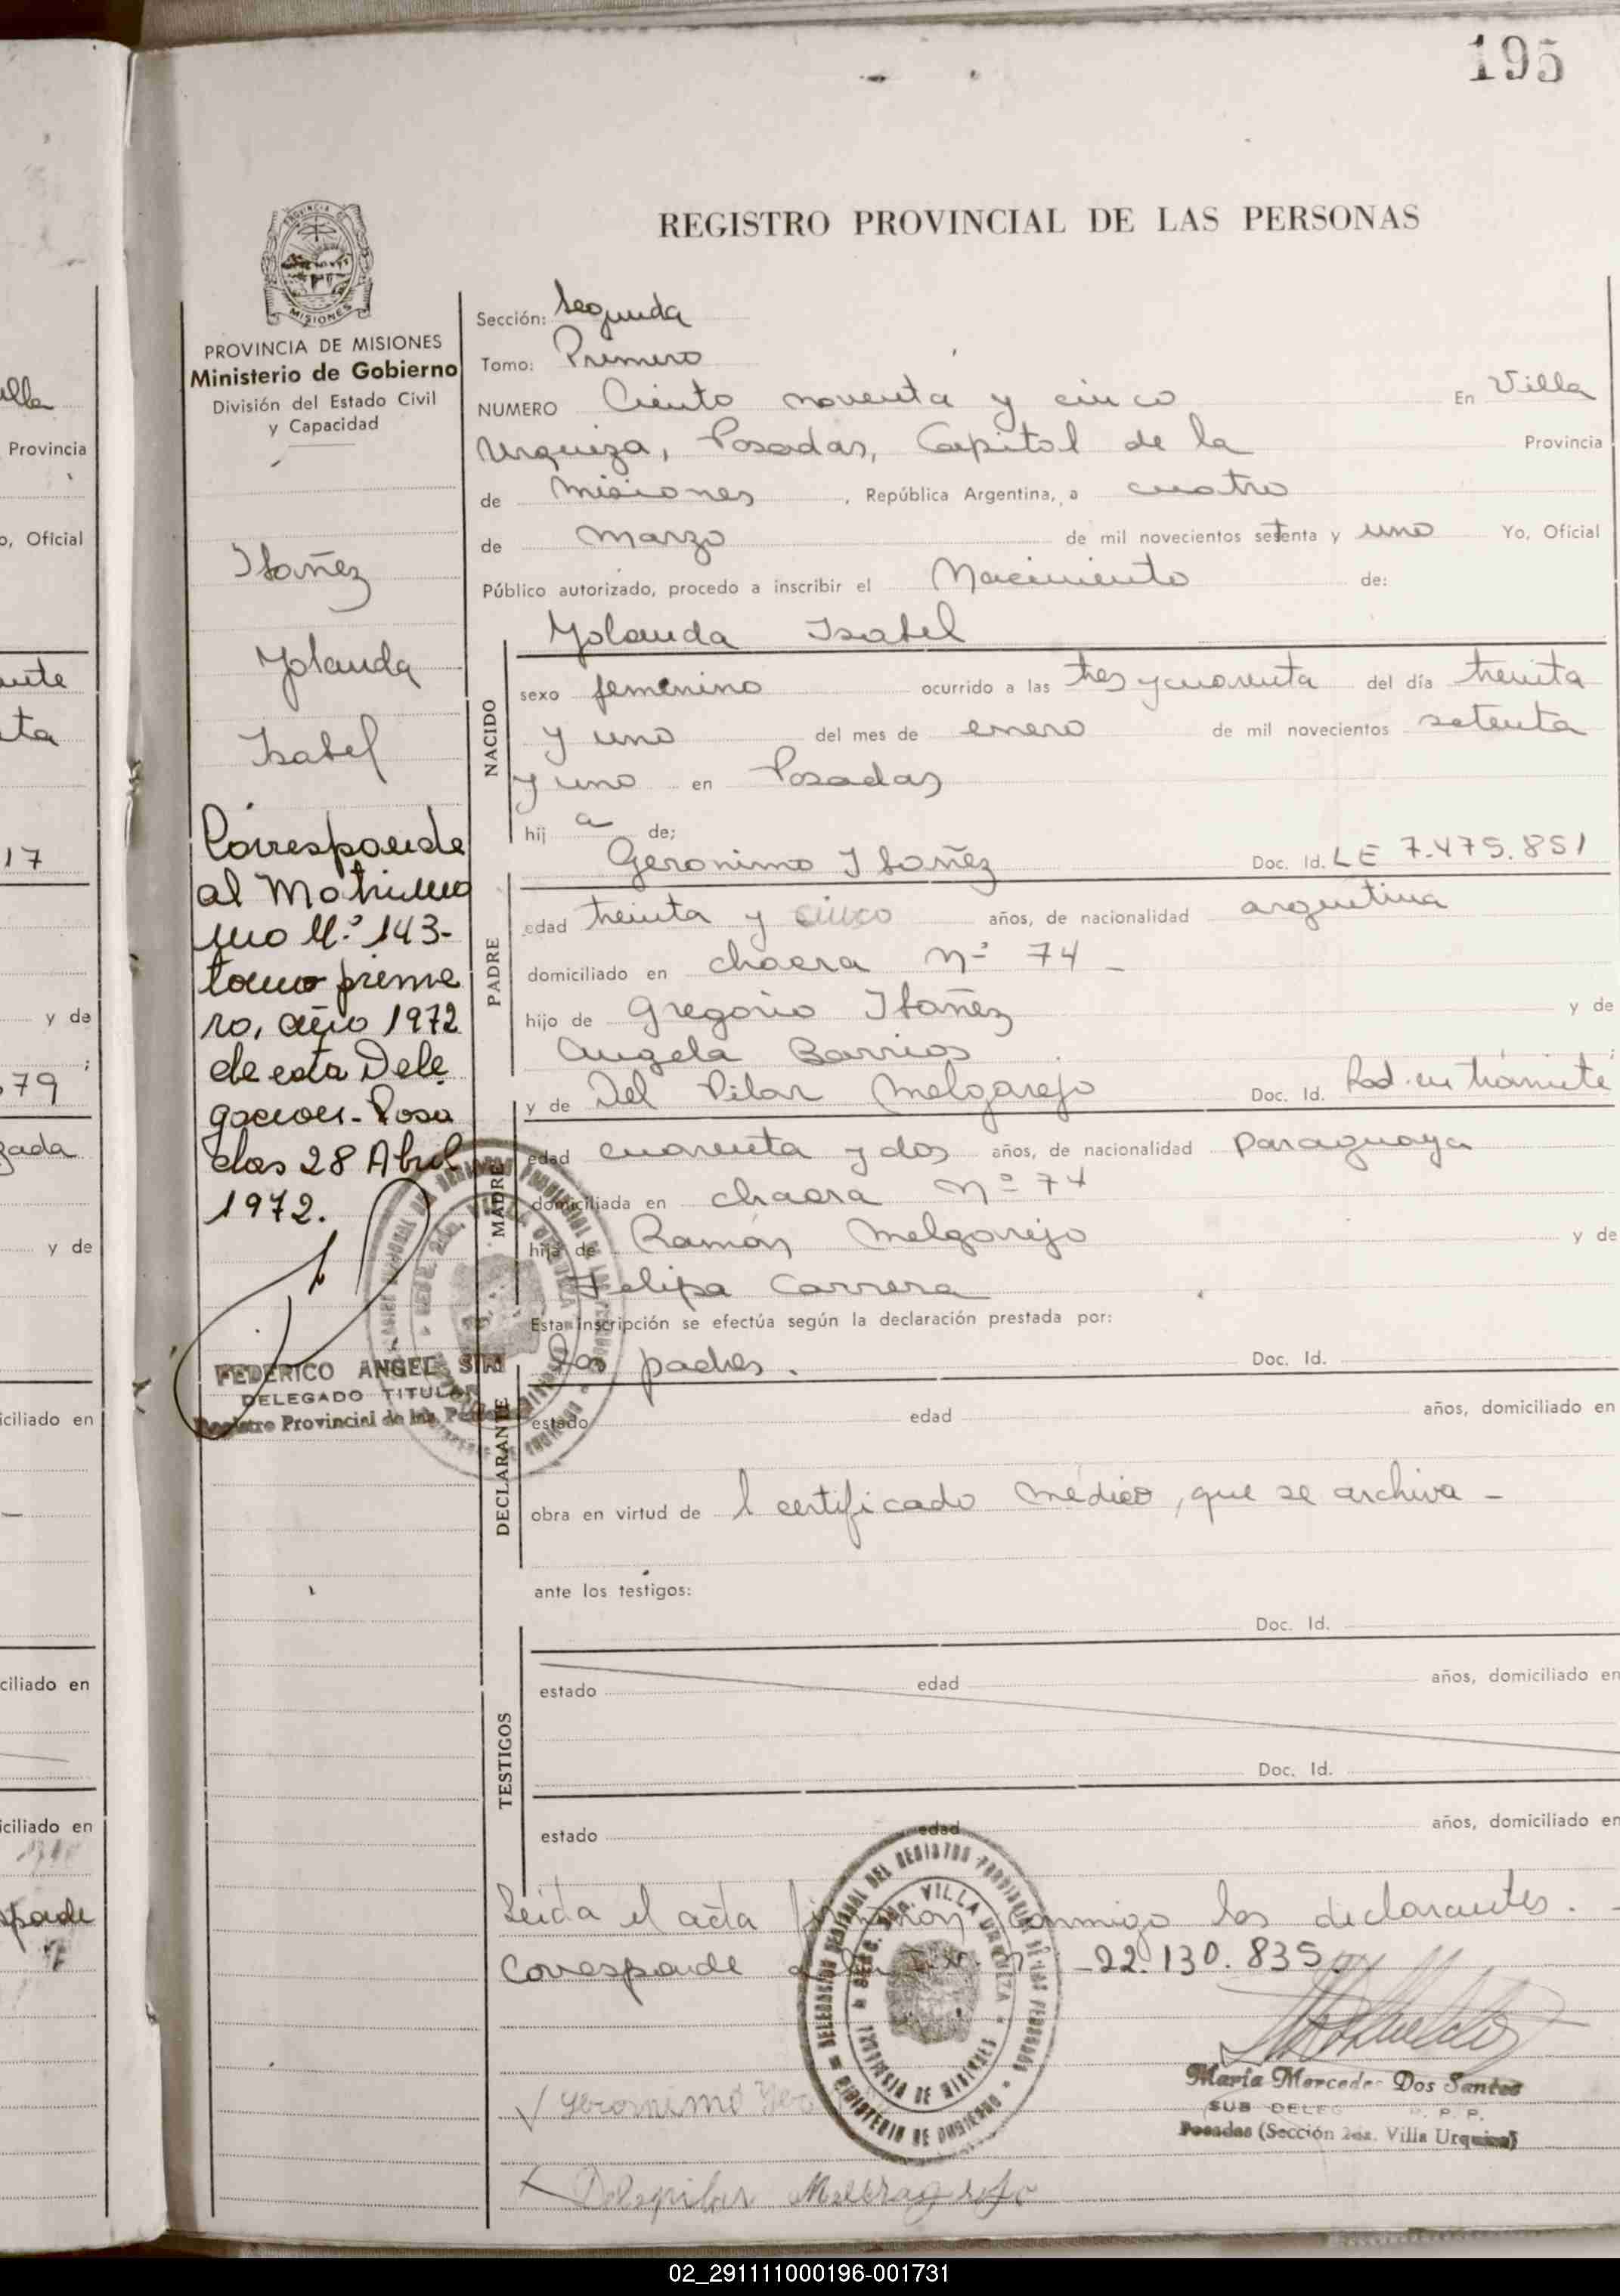 195
REGISTRO PROVINCIAL DE LAS PERSONAS
PROVINCIA DE MISIONES
Ministerio de Gobierno
División del Estado Civil
y Capacidad
Ibañez
Yolanda
Isabel
Corresponde
al Matrimo
nio N.º 143-
tomo prime
ro, año 1972
de esta Dele
gacion-Posa
das 28 Abril
1972.
FEDERICO ANGEL SIRI
DELEGADO TITULAR
Registro Provincial de las
Sección: Segunda
Tomo: Primero
NUMERO Ciento noventa y cinco En Villa
Urquiza, Posadas, Capital de la Provincia
de Misiones, República Argentina, a cuatro
de Marzo de mil novecientos setenta y uno Yo, Oficial
Público autorizado, procedo a inscribir el Nacimiento de:
Yolanda Isabel
NACIDO
sexo femenino ocurrido a las tres y cuarenta del día treinta
y uno del mes de enero de mil novecientos setenta
y uno en Posadas
hij a de;
Geronimo Ibañez Doc. Id. LE 7.475.851
PADRE
edad treinta y cinco años, de nacionalidad argentina
domiciliado en chacra nº 74 -
hijo de Gregorio Ibañez y de
Angela Barrios ;
y de Del Pilar Melgarejo Doc. Id. Rad. en trámite
MADRE
edad cuarenta y dos años, de nacionalidad paraguaya
domiciliada en chacra nº 74
hija de Ramón Melgarejo y de
Felipa Carrera
Esta inscripción se efectúa según la declaración prestada por:
los padres. Doc. Id.
DECLARANTE
estado edad años, domiciliado en
obra en virtud de l certificado médico, que se archiva -
ante los testigos:
Doc. Id.
TESTIGOS
estado edad años, domiciliado en
Doc. Id.
estado edad años, domiciliado en
Leida el acta firman conmigo los declarantes. -
Corresponde -22.130.835.
Geronimo
Delepilar
María Mercedes Dos Santos
SUB DELEG
Posadas (Sección 2da. Villa Urquiza)
02_291111000196-001731